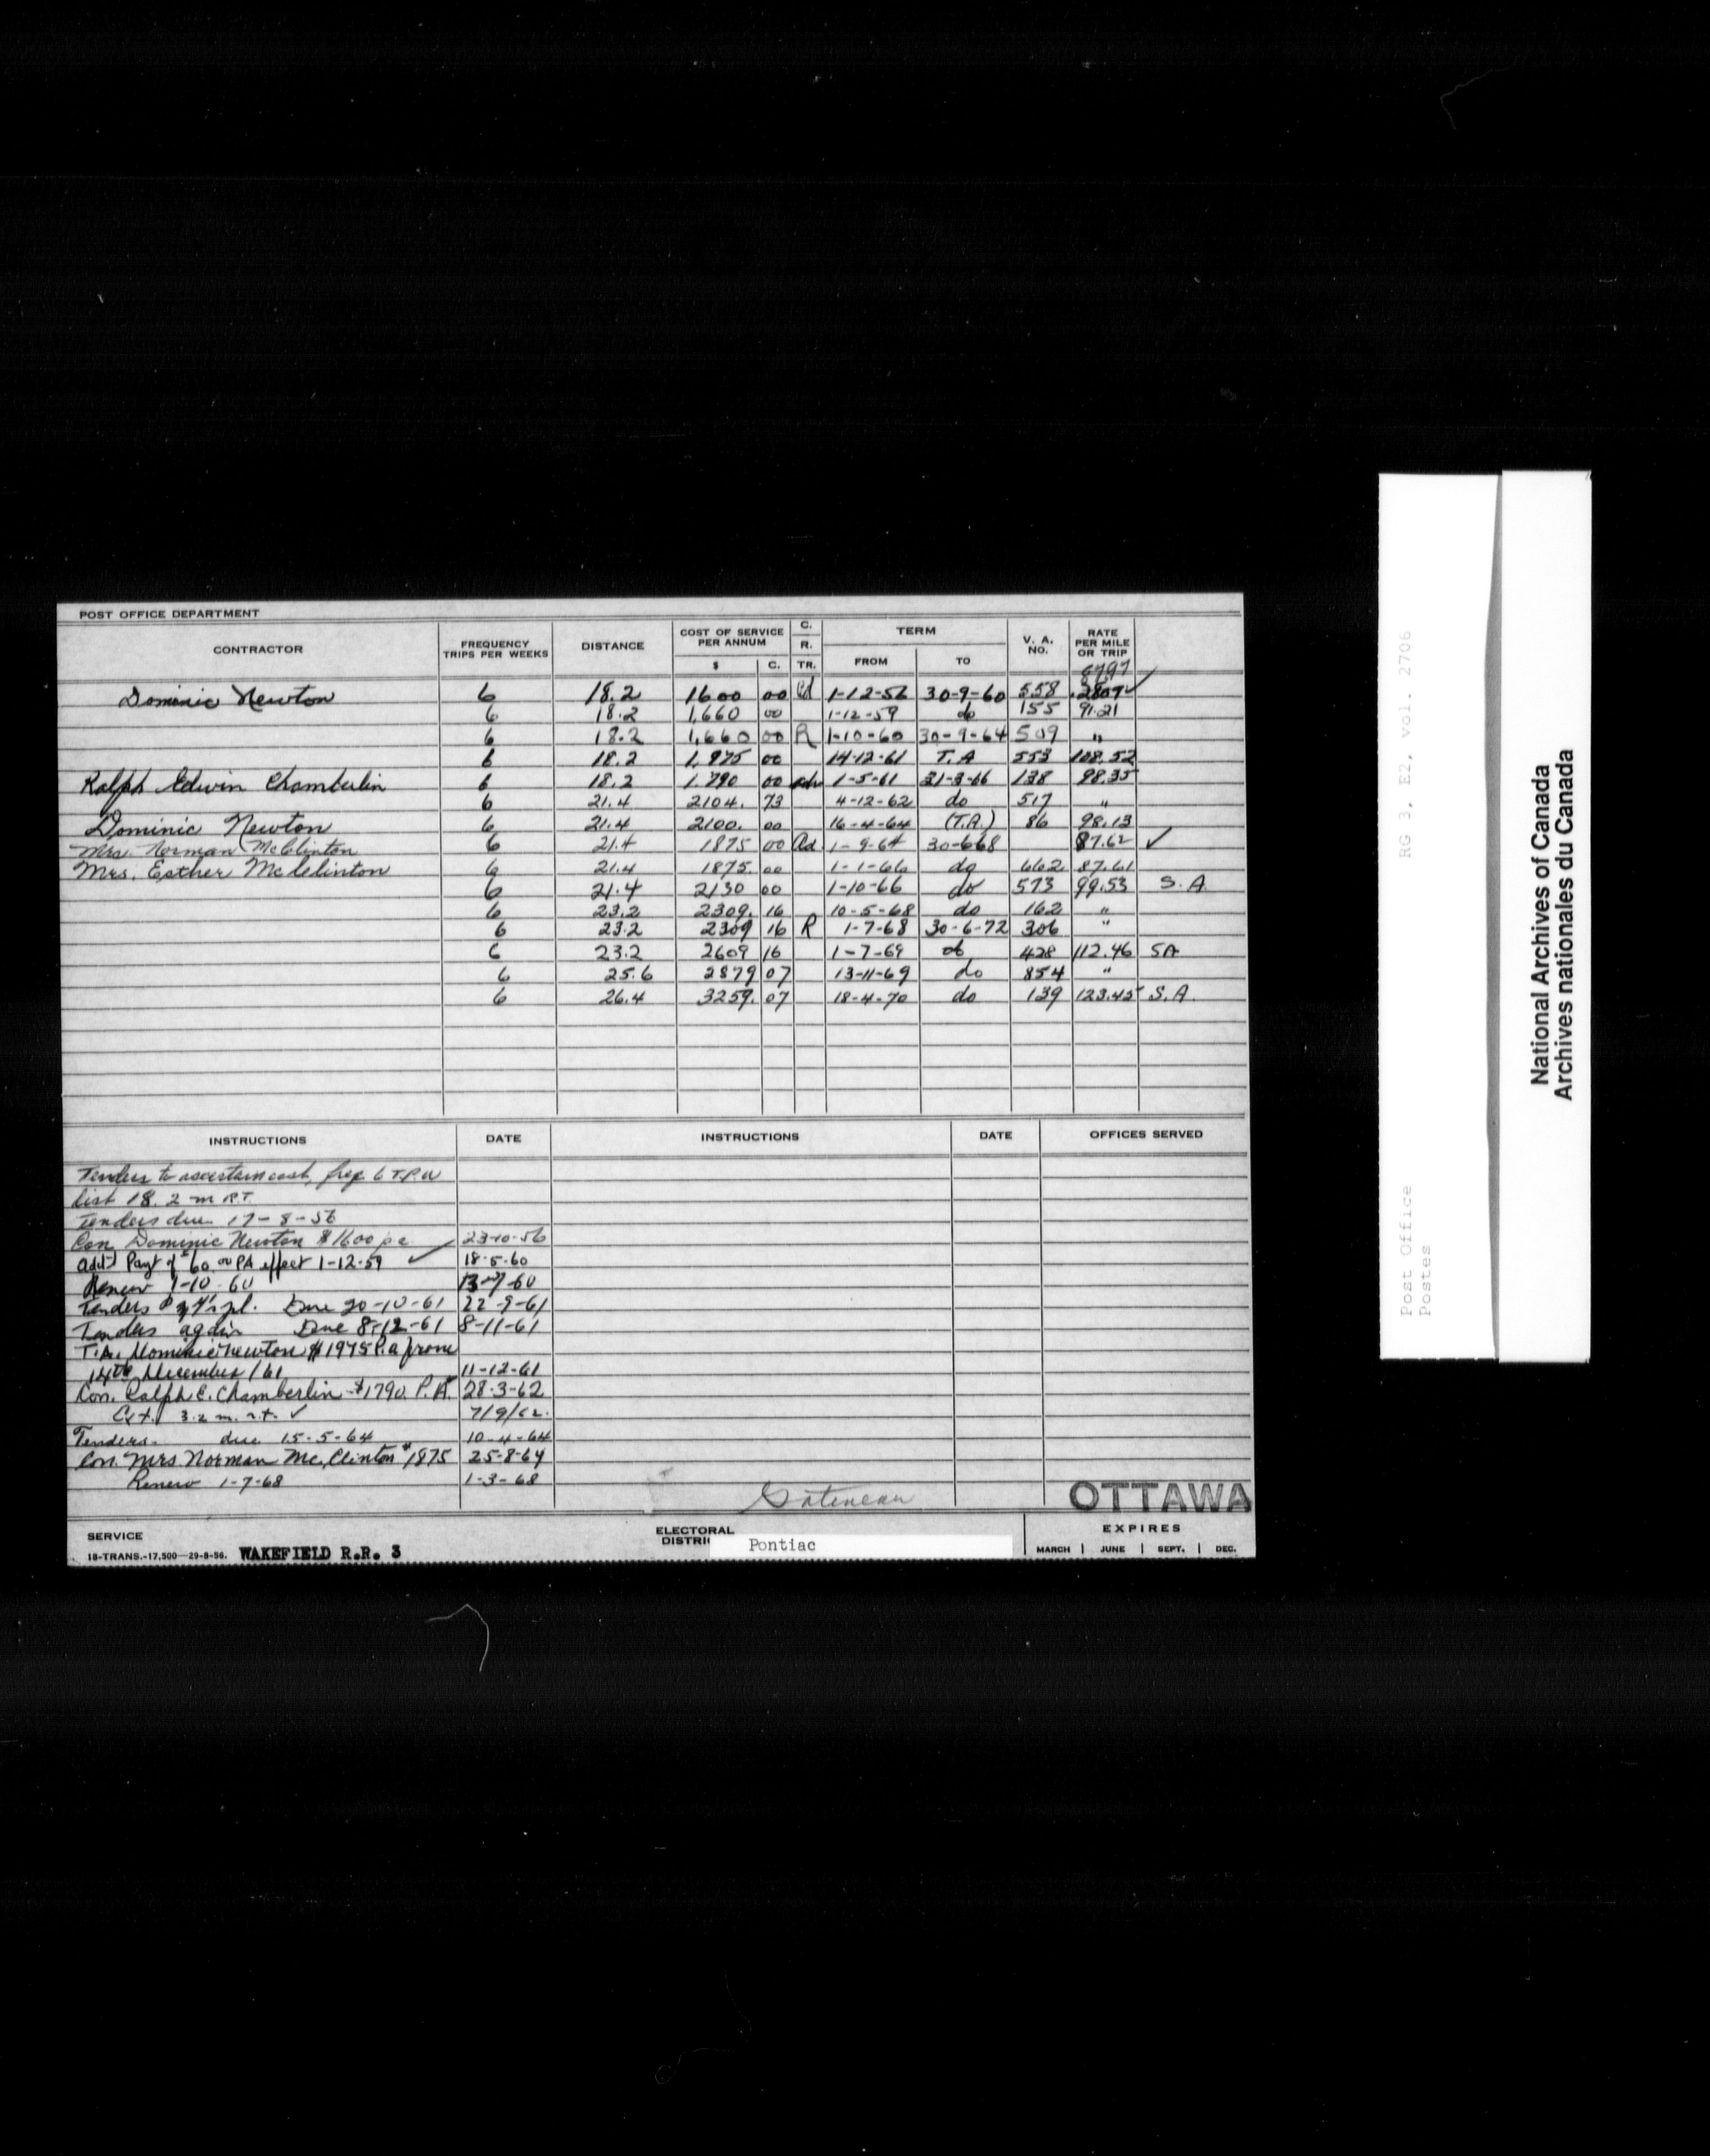 POST OFFICE DEPARTMENT
CONTRACTOR FREQUENCY TRIPS PER WEEKS DISTANCE COST OF SERVICE PER ANNUM $ C. C. R. TR. TERM FROM TO V. A. NO. RATE PER MILE OR TRIP
Dominic Newton 6 18.2 1600 00 1-12-56 30-9-60 558
6 18.2 1,660 00 1-12-59 do 155 91.21
6 18.2 1,660 00 R 1-10-60 30-9-64 509 "
6 18.2 1,975 00 14-12-61 T.A 553 108.52
Ralph Edwin Chamberlin 6 18.2 1.790 00 1-5-61 31-3-66 138 98.35
6 21.4 2104. 73 4-12-62 do 517 "
Dominic Newton 6 21.4 2100. 00 16-4-64 (T.A.) 86 98.13
Mrs. Norman McClinton 6 21.4 1875 00 1-9-64 30-668 87.62 ✓
Mrs. Esther McClinton 6 21.4 1875. 00 1-1-66 do 662 87.61
6 21.4 2130 00 1-10-66 do 573 99.53 S.A.
6 23.2 2309. 16 10-5-68 do 162 "
6 23.2 2309 16 R 1-7-68 30-6-72 306 "
6 23.2 2609 16 1-7-69 do 428 112.46 SA
6 25.6 2879 07 13-11-69 do 854 "
6 26.4 3259. 07 18-4-70 do 139 123.45 S.A.
INSTRUCTIONS DATE INSTRUCTIONS DATE OFFICES SERVED
Tenders to ascertain cost, freq 6 T.P.W
dist 18.2 m RT
Tenders due 17-8-56
Con. Dominic Newton $1600 pa 23-10-56
Add'l Payt of $60.00 PA effect 1-12-59 ✓ 18-5-60
Renew 1-10-60 13-7-60
Tenders Due 20-10-61 22-9-61
Tenders again Due 8-12-61 8-11-61
T.A. Dominic Newton $1975 P.a from
14th December/61 11-12-61
Con. Ralph E. Chamberlin-$1790. P.A. 28-3-62
Ext. 3.2 m. r.t. ✓ 7/9/62.
Tenders. due 15-5-64 10-4-64
Con. Mrs Norman Mc.Clinton $1875 25-8-64
Renew 1-7-68 1-3-68
Gatineau
OTTAWA
SERVICE
18-TRANS.-17,500—29-8-56. WAKEFIELD R.R. 3
ELECTORAL
Pontiac
EXPIRES
MARCH | JUNE | SEPT. | DEC.
RG 3, E2, vol. 2706
Post Office
Postes
National Archives of Canada
Archives nationales du Canada